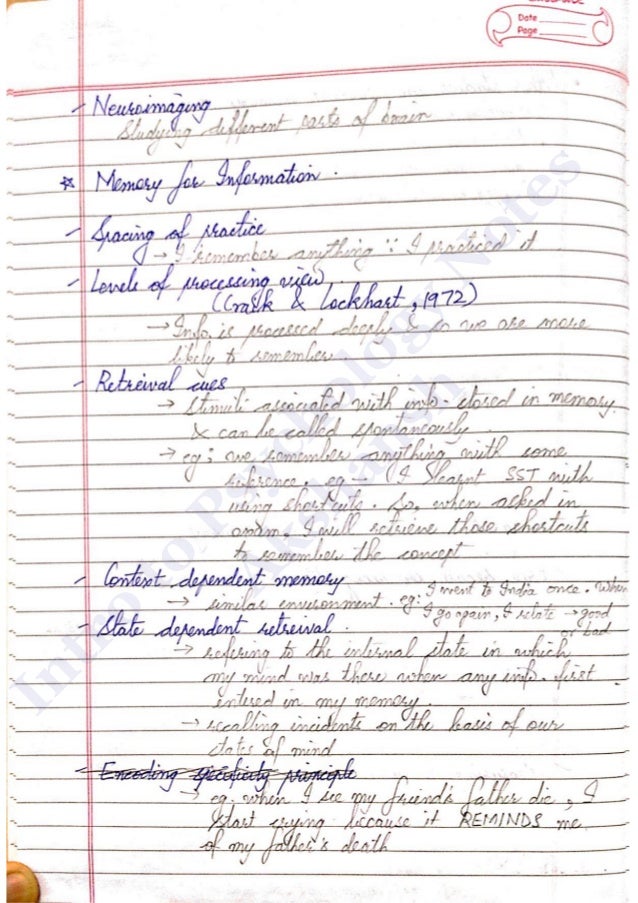 Date
Page
- Neuroimaging
Studying different parts of brain
☆ Memory for Information.
- Spacing of practice
→ I remember anything ∵ I practiced it
- Levels of processing view
(Craik & Lockhart, 1972)
→ Info. is processed deeply & so we are more
likely to remember
- Retreival cues
→ Stimuli associated with info. stored in memory
& can be called spontaneously
→ eg: we remember anything with some
reference. eg - (I learnt SST with
using shortcuts. So, when asked in
exam, I will retrieve those shortcuts
to remember the concept
- Context dependent memory
→ similar environment. eg: I went to India once. When
I go again, I relate → good
or bad
- State dependent retreival.
→ refering to the internal state in which
my mind was there when any info. first
entered in my memory.
→ recalling incidents on the basis of our
states of mind
- Encoding specificity principle
→ eg. when I see my friend's father die, I
start crying because it REMINDS me
of my father's death
Intro to Psychology Notes
Akshansh